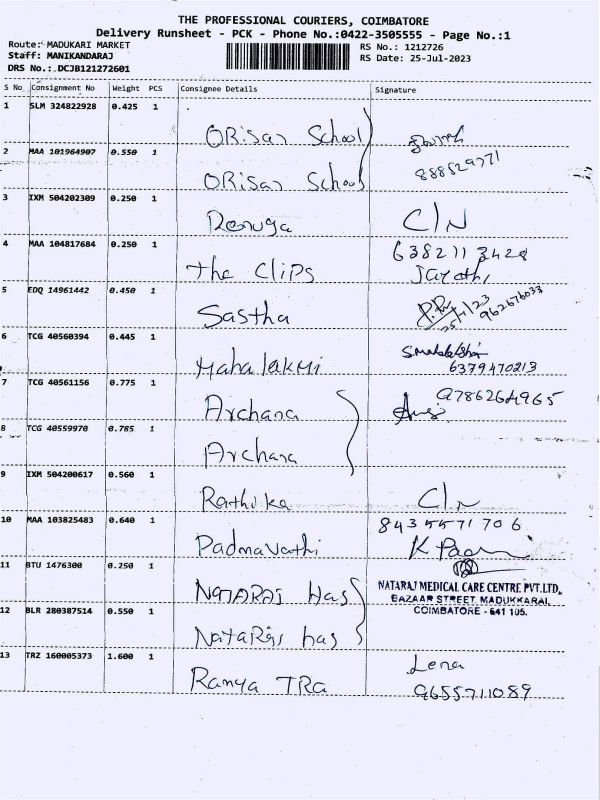 THE PROFESSIONAL COURIERS, COIMBATORE
Delivery Runsheet - PCK - Phone No.:0422-3505555 - Page No.:1
Route: MADUKARI MARKET
Staff: MANIKANDARAJ
DRS No.: DCJB121272601
RS No.: 1212726
RS Date: 25-Jul-2023
S No Consignment No Weight PCS Consignee Details Signature
1 SLM 324822928 0.425 1 ORisar School
2 MAA 101964907 0.550 1 ORisar School
3 IXM 504202309 0.250 1 Renuga C/N
4 MAA 104817684 0.250 1 the Clips 6382113428
5 EDQ 14961442 0.450 1 Sastha
6 TCG 40560394 0.445 1 Mahalakmi 6379470213
7 TCG 40561156 0.775 1 Archana 9786264965
8 TCG 40559970 0.785 1 Archana
9 IXM 504200617 0.560 1 Rathika C/N
10 MAA 103825483 0.640 1 Padmavathi 8435571706
11 BTU 1476300 0.250 1 NATARAJ Has
NATARAJ MEDICAL CARE CENTRE PVT.LTD,
BAZAAR STREET, MADUKKARAI,
COIMBATORE - 641 105.
12 BLR 280387514 0.550 1 NataRaj has
13 TRZ 160005373 1.600 1 Ramya TRA Lena
9655711089